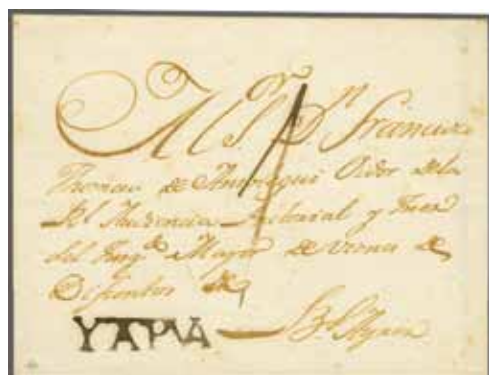 Al S.r D.n Francisco
Thomas de Ansotegui Oidor de la
Rl Audiencia Pretorial y Juez
del Juzg.do Mayor de vienes de
Difuntos &
YTAPVA B.s Ayres